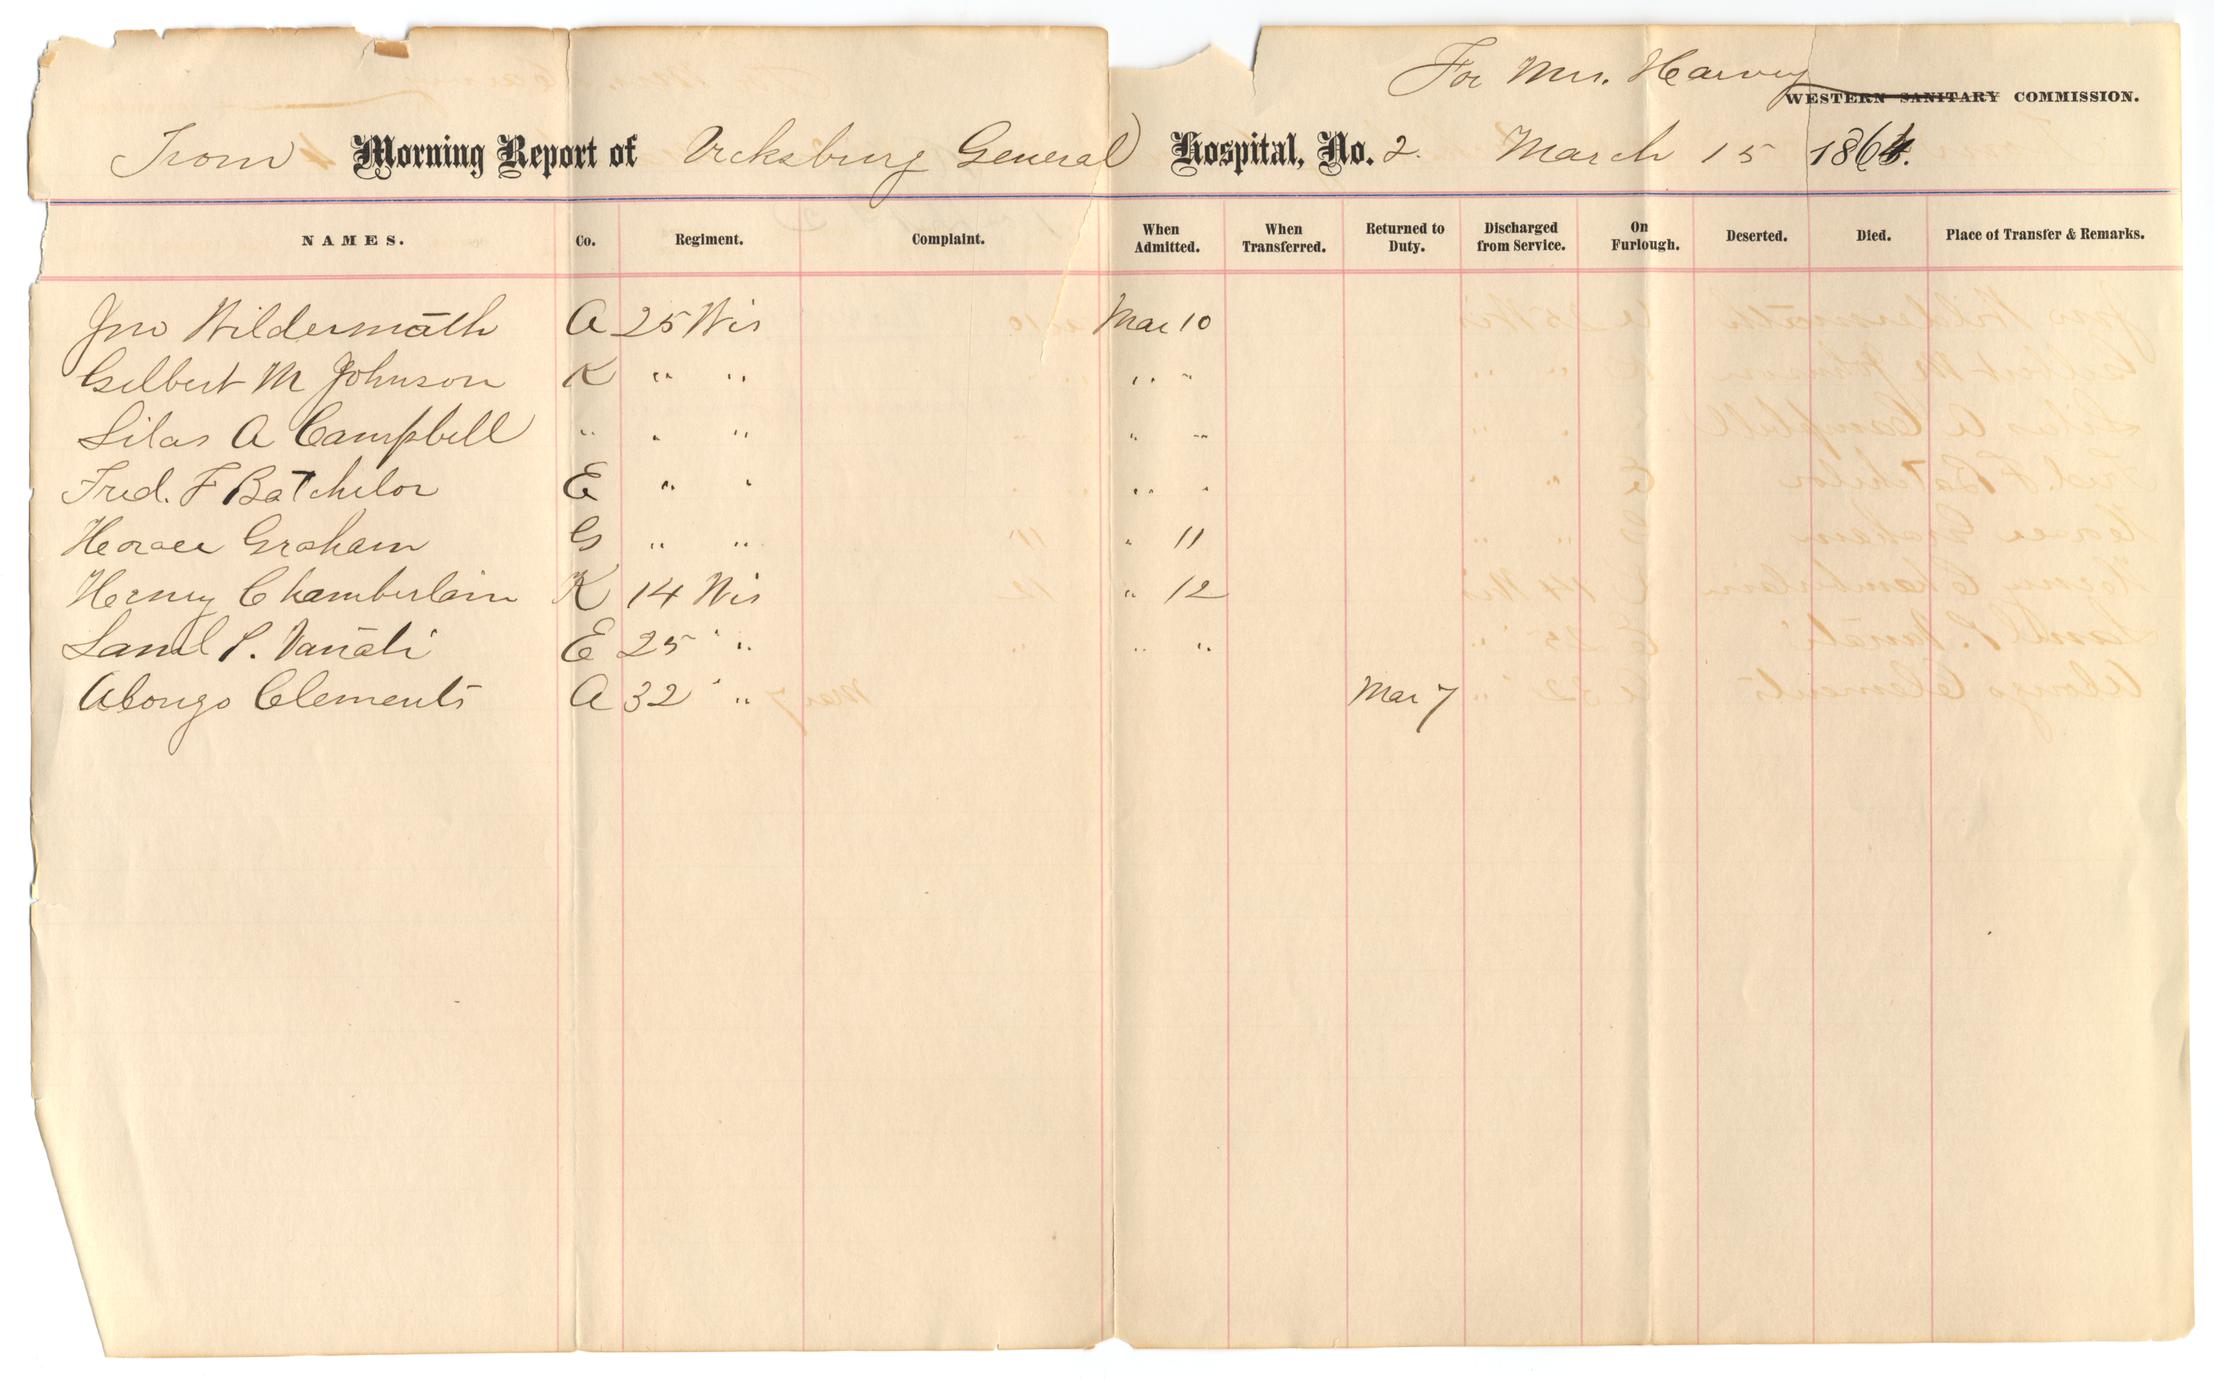 For Mrs. Harvey
WESTERN SANITARY COMMISSION.
From Morning Report of Vicksburg General Hospital, No. 2. March 15 1864.
NAMES. Co. Regiment. Complaint. When Admitted. When Transferred. Returned to Duty. Discharged from Service. On Furlough. Deserted. Died. Place of Transfer & Remarks.
Jno Wildermath A 25 Wis Mar 10
Gilbert M Johnson K " " " "
Silas A Campbell " " " " "
Fred. F Batchelor E " " " "
Horace Graham G " " " 11
Henry Chamberlain K 14 Wis " 12
Saml P. E 25 " " "
Alonzo Clements A 32 " " Mar 7